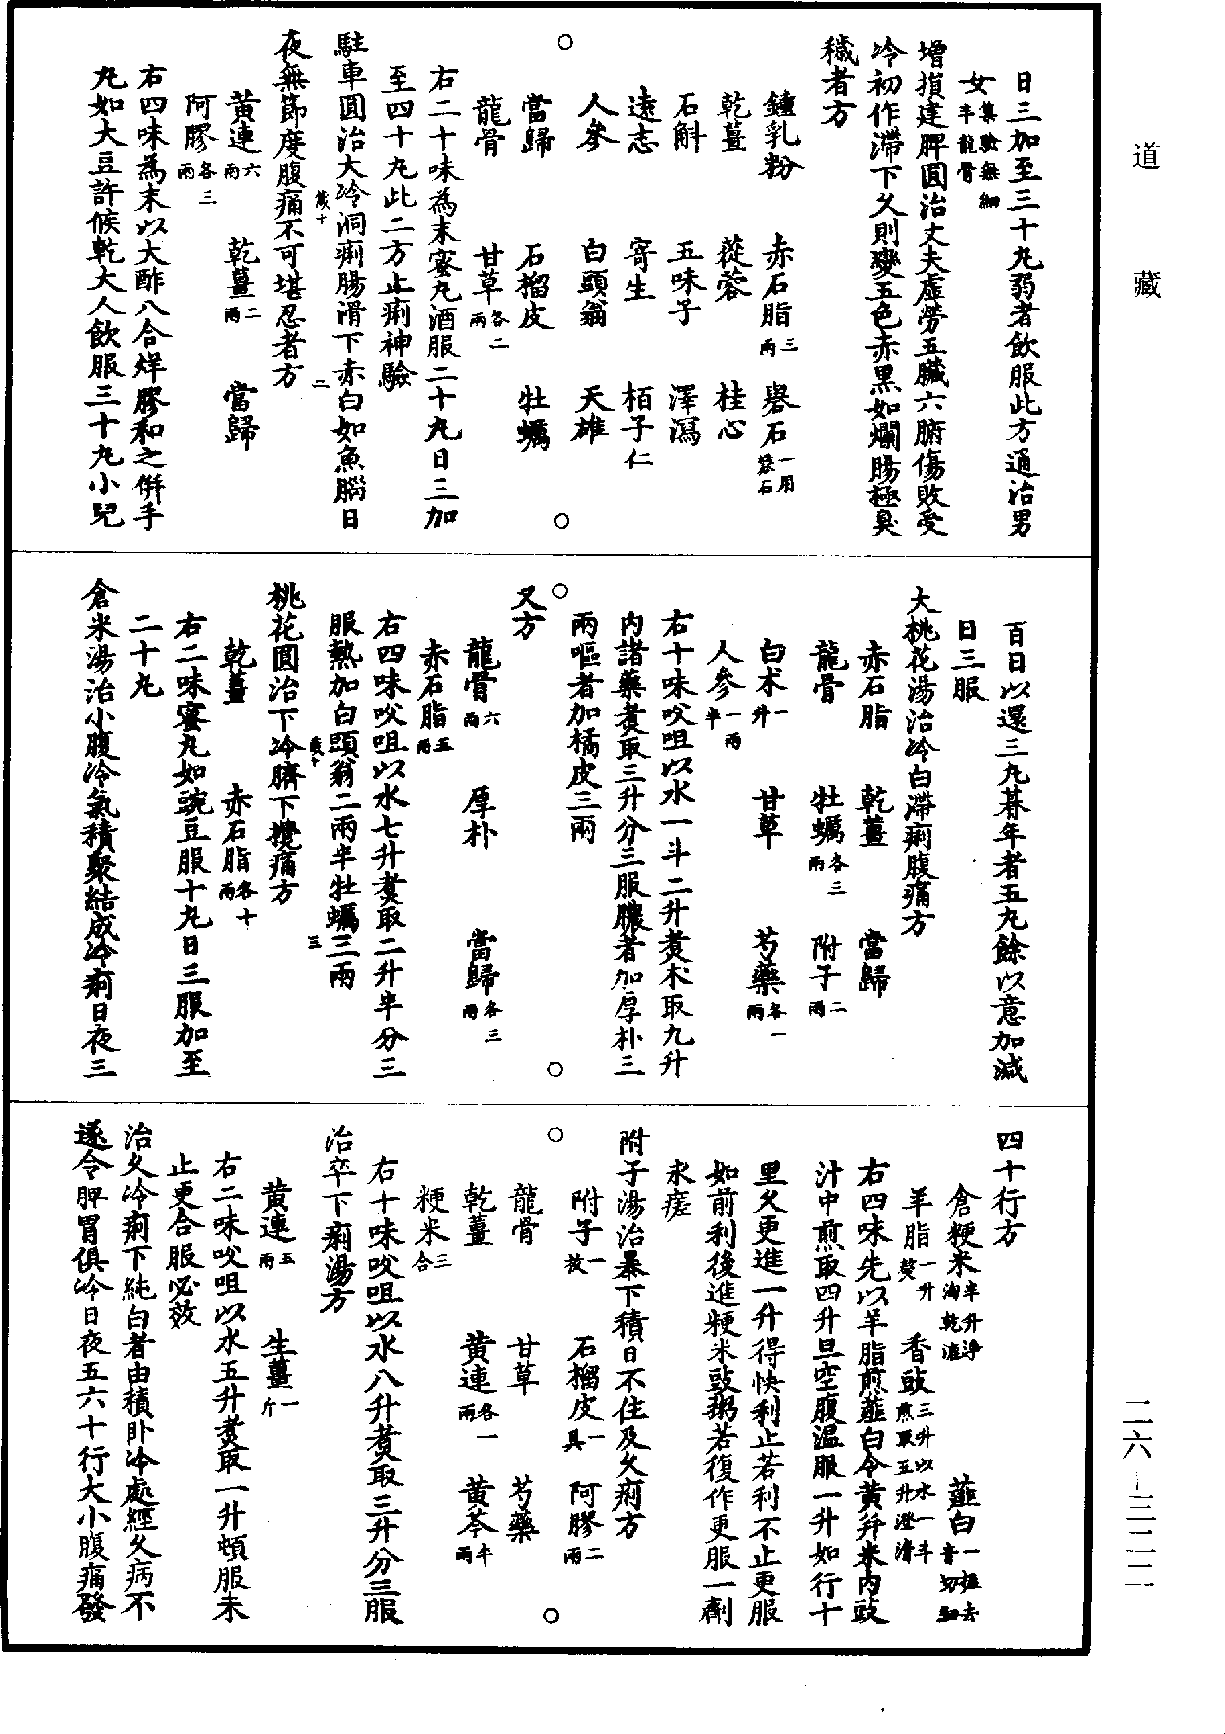 道藏
日三加至三十丸弱者飲服此方通治男
女集驗無細辛龍骨
增損建脾圓治丈夫虛勞五臟六腑傷敗受
冷初作滯下久則變五色赤黑如爛腸極臭
穢者方
鍾乳粉 赤石脂三兩 礜石一用礬石
乾薑 蓯蓉 桂心
石斛 五味子 澤瀉
遠志 寄生 栢子仁
人參 白頭翁 天雄
當歸 石榴皮 牡蠣
龍骨 甘草各二兩
右二十味為末蜜丸酒服二十丸日三加
至四十丸此二方止痢神驗
駐車圓治大冷洞痢腸滑下赤白如魚腦日
夜無節度腹痛不可堪忍者方
黃連六兩 乾薑二兩 當歸
阿膠各三兩
右四味為末以大酢八合烊膠和之併手
丸如大豆許候乾大人飲服三十丸小兒
百日以還三丸朞年者五丸餘以意加減
日三服
大桃花湯治冷白滯痢腹痛方
赤石脂 乾薑 當歸
龍骨 牡蠣各三兩 附子二兩
白术一升 甘草 芍藥各一兩
人參一兩半
右十味㕮咀以水一斗二升煑术取九升
内諸藥煑取三升分三服膿者加厚朴三
兩嘔者加橘皮三兩
又方
龍骨六兩 厚朴 當歸各三兩
赤石脂五兩
右四味㕮咀以水七升煑取二升半分三
服熱加白頭翁二兩半牡蠣三兩
桃花圓治下冷臍下攪痛方
乾薑 赤石脂各十兩
右二味蜜丸如豌豆服十丸日三服加至
二十丸
倉米湯治小腹冷氣積聚結成冷痢日夜三
四十行方
倉粳米半升淨淘乾漉 薤白一握去青切細
羊脂一升熬 香豉三升以水一斗煎取五升澄清
右四味先以羊脂煎薤白令黃并米内豉
汁中煎取四升旦空腹溫服一升如行十
里久更進一升得快利止若利不止更服
如前利後進粳米豉粥若復作更服一劑
永瘥
附子湯治暴下積日不住及久痢方
附子一枚 石榴皮一具 阿膠二兩
龍骨 甘草 芍藥
乾薑 黃連各一兩 黃芩半兩
粳米三合
右十味㕮咀以水八升煑取三升分三服
治卒下痢湯方
黃連五兩 生薑一斤
右二味㕮咀以水五升煑取一升頓服未
止更合服必效
治久冷痢下純白者由積卧冷處經久病不
遂令脾胃俱冷日夜五六十行大小腹痛發
二六—三二二